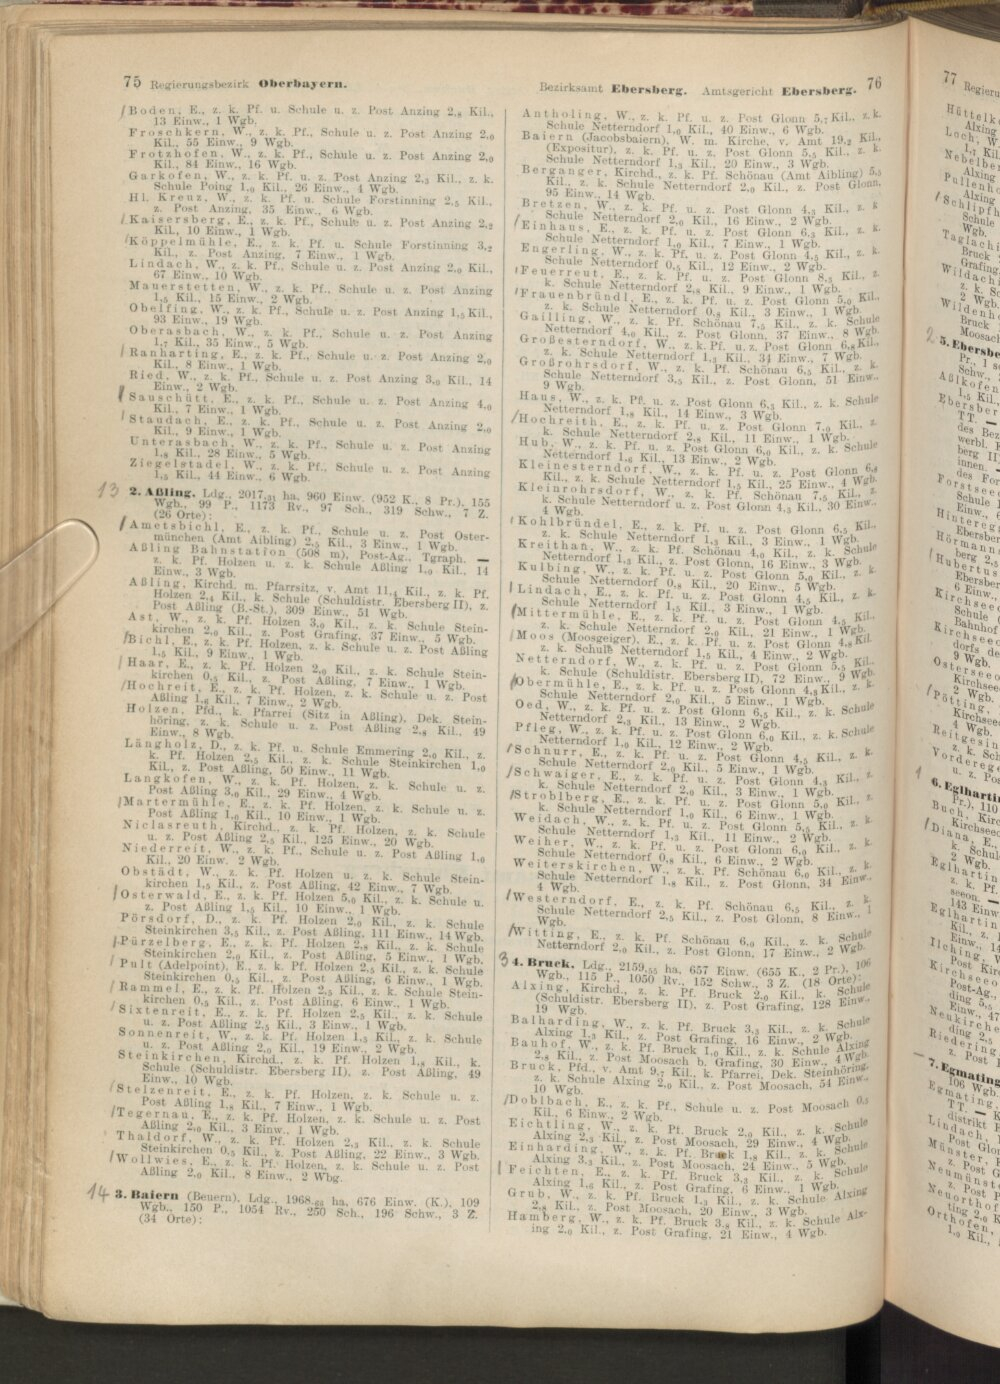 75 Regierungsbezirk Oberbayern.
Boden, E., z. k. Pf. u. Schule u. z. Post Anzing 2,8 Kil.,
13 Einw., 1 Wgb.
Froschkern, W., z. k. Pf., Schule u. z. Post Anzing 2,0
Kil., 55 Einw., 9 Wgb.
Frotzhofen, W., z. k. Pf., Schule u. z. Post Anzing 2,0
Kil., 84 Einw., 16 Wgb.
Garkofen, W., z. k. Pf. u. z. Post Anzing 2,5 Kil., z. k.
Schule Poing 1,0 Kil., 26 Einw., 4 Wgb.
Hl. Kreuz, W., z. k. Pf. u. Schule Forstinning 2,5 Kil.,
z. Post Anzing, 35 Einw., 6 Wgb.
Kaisersberg, E., z. k. Pf., Schule u. z. Post Anzing 2,2
Kil., 10 Einw., 1 Wgb.
Köppelmühle, E., z. k. Pf. u. Schule Forstinning 3,2
Kil., z. Post Anzing, 7 Einw., 1 Wgb.
Lindach, W., z. k. Pf., Schule u. z. Post Anzing 2,0 Kil.,
67 Einw., 10 Wgb.
Mauerstetten, W., z. k. Pf., Schule u. z. Post Anzing
1,5 Kil., 15 Einw., 2 Wgb.
Obelfing, W., z. k. Pf., Schule u. z. Post Anzing 1,5 Kil.,
93 Einw., 19 Wgb.
Oberasbach, W., z. k. Pf., Schule u. z. Post Anzing
1,7 Kil., 35 Einw., 5 Wgb.
Ranharting, E., z. k. Pf., Schule u. z. Post Anzing 2,0
Kil., 8 Einw., 1 Wgb.
Ried, W., z. k. Pf., Schule u. z. Post Anzing 3,0 Kil., 14
Einw., 2 Wgb.
Sauschütt, E., z. k. Pf., Schule u. z. Post Anzing 4,0
Kil., 7 Einw., 1 Wgb.
Staudach, E., z. k. Pf., Schule u. z. Post Anzing 2,0
Kil., 9 Einw., 1 Wgb.
Unterasbach, W., z. k. Pf., Schule u. z. Post Anzing
1,8 Kil., 28 Einw., 5 Wgb.
Ziegelstadel, W., z. k. Pf., Schule u. z. Post Anzing
1,5 Kil., 44 Einw., 6 Wgb.
13 2. Aßling. Ldg., 2017,31 ha, 960 Einw. (952 K., 8 Pr.), 155
Wgb., 99 P., 1173 Rv., 97 Sch., 319 Schw., 7 Z.
(26 Orte):
Ametsbichl, E., z. k. Pf., Schule u. z. Post Oster-
münchen (Amt Aibling) 2,5 Kil., 3 Einw., 1 Wgb.
Aßling Bahnstation (508 m), Post-Ag., Tgraph. —
z. k. Pf. Holzen u. z. k. Schule Aßling 1,0 Kil., 14
Einw., 3 Wgb.
Aßling, Kirchd. m. Pfarrsitz, v. Amt 11,4 Kil., z. k. Pf.
Holzen 2,4 Kil., k. Schule (Schuldistr. Ebersberg II), z.
Post Aßling (B.-St.), 309 Einw., 51 Wgb.
Ast, W., z. k. Pf. Holzen 3,0 Kil., z. k. Schule Stein-
kirchen 2,0 Kil., z. Post Grafing, 37 Einw., 5 Wgb.
Bichl, E., z. k. Pf. Holzen, z. k. Schule u. z. Post Aßling
1,5 Kil., 9 Einw., 1 Wgb.
Haar, E., z. k. Pf. Holzen 2,0 Kil., z. k. Schule Stein-
kirchen 0,5 Kil., z. Post Aßling, 7 Einw., 1 Wgb.
Hochreit, E., z. k. Pf. Holzen, z. k. Schule u. z. Post
Aßling 1,6 Kil., 7 Einw., 2 Wgb.
Holzen, Pfd., k. Pfarrei (Sitz in Aßling), Dek. Stein-
höring, z. k. Schule u. z. Post Aßling 2,8 Kil., 49
Einw., 8 Wgb.
Längholz, D., z. k. Pf. u. Schule Emmering 2,0 Kil., z.
k. Pf. Holzen 2,5 Kil., z. k. Schule Steinkirchen 1,0
Kil., z. Post Aßling, 50 Einw., 11 Wgb.
Langkofen, W., z. k. Pf. Holzen, z. k. Schule u. z.
Post Aßling 3,0 Kil., 29 Einw., 4 Wgb.
Martermühle, E., z. k. Pf. Holzen, z. k. Schule u. z.
Post Aßling 1,0 Kil., 10 Einw., 1 Wgb.
Niclasreuth, Kirchd., z. k. Pf. Holzen, z. k. Schule
u. z. Post Aßling 2,5 Kil., 125 Einw., 20 Wgb.
Niederreit, W., z. k. Pf., Schule u. z. Post Aßling 1,0
Kil., 20 Einw. 2 Wgb.
Obstädt, W., z. k. Pf. Holzen u. z. k. Schule Stein-
kirchen 1,5 Kil., z. Post Aßling, 42 Einw., 7 Wgb.
Osterwald, E., z. k. Pf. Holzen 5,0 Kil., z. k. Schule u.
z. Post Aßling 1,5 Kil., 10 Einw., 1 Wgb.
Pörsdorf, D., z. k. Pf. Holzen 2,0 Kil., z. k. Schule
Steinkirchen 3,5 Kil., z. Post Aßling, 111 Einw., 14 Wgb.
Pürzelberg, E., z. k. Pf. Holzen 2,8 Kil., z. k. Schule
Steinkirchen 2,0 Kil., z. Post Aßling, 5 Einw., 1 Wgb.
Pult (Adelpoint), E., z. k. Pf. Holzen 2,5 Kil., z. k. Schule
Steinkirchen 0,5 Kil., z. Post Aßling, 6 Einw., 1 Wgb.
Rammel, E., z. k. Pf. Holzen 2,5 Kil., z. k. Schule Stein-
kirchen 0,5 Kil., z. Post Aßling, 6 Einw., 1 Wgb.
Sixtenreit, E., z. k. Pf. Holzen 2,5 Kil., z. k. Schule
u. z. Post Aßling 2,5 Kil., 3 Einw., 1 Wgb.
Sonnenreit, W., z. k. Pf. Holzen 1,5 Kil., z. k. Schule
u. z. Post Aßling 2,0 Kil., 19 Einw., 2 Wgb.
Steinkirchen, Kirchd., z. k. Pf. Holzen 1,8 Kil., k.
Schule (Schuldistr. Ebersberg II), z. Post Aßling, 49
Einw., 10 Wgb.
Stelzenreit, E., z. k. Pf. Holzen, z. k. Schule u. z.
Post Aßling 1,8 Kil., 7 Einw., 1 Wgb.
Tegernau, E., z. k. Pf. Holzen, z. k. Schule u. z. Post
Aßling 2,0 Kil., 3 Einw., 1 Wgb.
Thaldorf, W., z. k. Pf. Holzen 2,3 Kil., z. k. Schule
Steinkirchen 0,5 Kil., z. Post Aßling, 22 Einw., 3 Wgb.
Wollwies, E., z. k. Pf. Holzen, z. k. Schule u. z. Post
Aßling 2,0 Kil., 8 Einw., 2 Wbg.
14 3. Baiern (Beuern), Ldg., 1968,63 ha, 676 Einw. (K.), 109
Wgb., 150 P., 1054 Rv., 250 Sch., 196 Schw., 3 Z.
(34 Orte):
Bezirksamt Ebersberg. Amtsgericht Ebersberg. 76
Antholing, W., z. k. Pf. u. z. Post Glonn 5,7 Kil., z. k.
Schule Netterndorf 1,0 Kil., 40 Einw., 6 Wgb.
Baiern (Jacobsbaiern), W. m. Kirche, v. Amt 19,2 Kil.,
(Expositur), z. k. Pf. u. z. Post Glonn 5,5 Kil., z. k.
Schule Netterndorf 1,3 Kil., 20 Einw., 3 Wgb.
Berganger, Kirchd., z. k. Pf. Schönau (Amt Aibling) 5,5
Kil., z. k. Schule Netterndorf 2,0 Kil., z. Post Glonn,
95 Einw., 14 Wgb.
Bretzen, W., z. k. Pf. u. z. Post Glonn 4,3 Kil., z. k
Schule Netterndorf 2,0 Kil., 16 Einw., 2 Wgb.
Einhaus, E., z. k. Pf. u. z. Post Glonn 6,3 Kil., z. k.
Schule Netterndorf 1,0 Kil., 7 Einw., 1 Wgb.
Engerling, W., z. k. Pf. u. z. Post Glonn 4,5 Kil., z. k.
Schule Netterndorf 0,5 Kil., 12 Einw., 2 Wgb.
Feuerreut, E., z. k. Pf. u. z. Post Glonn 8,5 Kil., z.
k. Schule Netterndorf 2,8 Kil., 9 Einw., 1 Wgb.
Frauenbründl, E., z. k. Pf. u. z. Post Glonn 5,0 Kil.,
z. k. Schule Netterndorf 0,8 Kil., 3 Einw., 1 Wgb.
Gailling, W., z. k. Pf. Schönau 7,5 Kil., z. k. Schule
Netterndorf 4,0 Kil., z. Post Glonn, 37 Einw., 8 Wgb.
Großesterndorf, W., z. k. Pf. u. z. Post Glonn 6,8 Kil.,
z. k. Schule Netterndorf 1,3 Kil., 31 Einw., 7 Wgb.
Großrohrsdorf, W., z. k. Pf. Schönau 6,5 Kil., z. k.
Schule Netterndorf 3,5 Kil., z. Post Glonn, 51 Einw.,
9 Wgb.
Haus, W., z. k. Pf. u. z. Post Glonn 6,3 Kil., z. k. Schule
Netterndorf 1,8 Kil., 14 Einw., 3 Wgb.
Hochreith, E., z. k. Pf. u. z. Post Glonn 7,0 Kil., z.
k. Schule Netterndorf 2,8 Kil., 11 Einw., 1 Wgb.
Hub, W., z. k. Pf. u. z. Post Glonn 6,0 Kil., z. k. Schule
Netterndorf 1,6 Kil., 13 Einw., 2 Wgb.
Kleinesterndorf, W., z. k. Pf. u. z. Post Glonn 6,8
Kil., z. k. Schule Netterndorf 1,5 Kil., 25 Einw., 4 Wgb.
Kleinrohrsdorf, W., z. k. Pf. Schönau 7,5 Kil., z.
k. Schule Netterndorf u. z. Post Glonn 4,3 Kil., 30 Einw.,
4 Wgb.
Kohlbründel, E., z. k. Pf. u. z. Post Glonn 6,5 Kil.,
z. k. Schule Netterndorf 1,3 Kil., 3 Einw., 1 Wgb.
Kreithan, W., z. k. Pf. Schönau 4,0 Kil., z. k. Schule
Netterndorf 1,3 Kil., z. Post Glonn, 16 Einw., 3 Wgb.
Kulbing, W., z. k. Pf. u. z. Post Glonn 5,0 Kil., z. k.
Schule Netterndorf 0,8 Kil., 20 Einw., 5 Wgb.
Lindach, E., z. k. Pf. u. z. Post Glonn 4,5 Kil., z. k.
Schule Netterndorf 1,5 Kil., 3 Einw., 1 Wgb.
Mittermühle, E., z. k. Pf. u. z. Post Glonn 4,5 Kil.,
z. k. Schule Netterndorf 2,0 Kil., 21 Einw., 1 Wgb.
Moos (Moosgeiger), E., z. k. Pf. u. z. Post Glonn 4,8 Kil.
z. k. Schule Netterndorf 1,5 Kil., 4 Einw., 2 Wgb.
Netterndorf, W., z. k. Pf. u. z. Post Glonn 5,5 Kil.,
k. Schule (Schuldistr. Ebersberg II), 72 Einw., 9 Wgb.
Obermühle, E., z. k. Pf. u. z. Post Glonn 4,8 Kil., z. k.
Schule Netterndorf 2,0 Kil., 5 Einw., 1 Wgb.
Oed, W., z. k. Pf. u. z. Post Glonn 6,5 Kil., z. k. Schule
Netterndorf 2,3 Kil., 13 Einw., 2 Wgb.
Pfleg, W., z. k. Pf. u. z. Post Glonn 6,0 Kil., z. k. Schule
Netterndorf 1,0 Kil., 12 Einw., 2 Wgb.
Schnurr, E., z. k. Pf. u. z. Post Glonn 4,5 Kil., z. k.
Schule Netterndorf 2,0 Kil., 5 Einw., 1 Wgb.
Schwaiger, E., z. k. Pf. u. z. Post Glonn 4,3 Kil., z.
k. Schule Netterndorf 2,0 Kil., 3 Einw., 1 Wgb.
Stroblberg, E., z. k. Pf. u. z. Post Glonn 5,0 Kil., z.
k. Schule Netterndorf 1,0 Kil., 6 Einw., 1 Wgb.
Weidach, W., z. k. Pf. u. z. Post Glonn 5,5 Kil., z. k.
Schule Netterndorf 1,3 Kil., 11 Einw., 2 Wgb.
Weiher, W., z. k. Pf. u. z. Post Glonn 6,0 Kil., z. k.
Schule Netterndorf 0,8 Kil., 6 Einw., 2 Wgb.
Weiterskirchen, W., z. k. Pf. Schönau 6,0 Kil., z. k.
Schule Netterndorf 1,8 Kil., z. Post Glonn, 34 Einw.,
4 Wgb.
Westerndorf, E., z. k. Pf. Schönau 6,5 Kil., z. k.
Schule Netterndorf 2,5 Kil., z. Post Glonn, 8 Einw., 1
Wgb.
Witting, E., z. k. Pf. Schönau 6,0 Kil., z. k. Schule
Netterndorf 2,0 Kil., z. Post Glonn, 17 Einw., 2 Wgb.
3 4. Bruck. Ldg., 2159,55 ha, 657 Einw. (655 K., 2 Pr.), 106
Wgb., 115 P., 1050 Rv., 152 Schw., 3 Z. (18 Orte):
Alxing, Kirchd., z. k. Pf. Bruck 2,0 Kil., k. Schule
(Schuldistr. Ebersberg II), z. Post Grafing, 128 Einw.,
19 Wgb.
Balharding, W., z. k. Pf. Bruck 3,3 Kil., z. k. Schule
Alxing 1,3 Kil., z. Post Grafing, 16 Einw., 2 Wgb.
Bauhof, W., z. k. Pf. Bruck 1,0 Kil., z. k. Schule Alxing
2,8 Kil., z. Post Moosach b. Grafing, 30 Einw., 4 Wgb.
Bruck, Pfd., v. Amt 9,7 Kil., k. Pfarrei, Dek. Steinhöring,
z. k. Schule Alxing 2,0 Kil., z. Post Moosach, 54 Einw.,
10 Wgb.
Doblbach, E., z. k. Pf., Schule u. z. Post Moosach 0,5
Kil., 6 Einw., 2 Wgb.
Eichtling, W., z. k. Pf. Bruck 2,0 Kil., z. k. Schule
Alxing 2,3 Kil., z. Post Moosach, 29 Einw., 4 Wgb.
Einharding, W., z. k. Pf. Bruck 1,8 Kil., z. k. Schule
Alxing 3,3 Kil., z. Post Moosach, 24 Einw., 5 Wgb.
Feichten, E., z. k. Pf. Bruck 3,3 Kil., z. k. Schule
Alxing 1,6 Kil., z. Post Grafing, 6 Einw., 1 Wgb.
Grub, W., z. k. Pf. Bruck 1,3 Kil., z. k. Schule Alxing
2,8 Kil., z. Post Moosach, 20 Einw., 3 Wgb.
Hamberg, W., z. k. Pf. Bruck 3,8 Kil., z. k. Schule Alx-
ing 2,0 Kil., z. Post Grafing, 21 Einw., 4 Wgb.
77 Regieru
Hüttelk
Alxing
Loch, W.
1,7 Kil
Nebelber
Alxing
Pullenh
Alxing
Schlipfh
Schule
Wgb.
Taglachi
Bruck
Grafing
Wildach
z. k. Sc
2 Wgb.
Wildenh
Bruck
Moosach
2 5. Ebersbe
Pr., 1 s
Schw.,
Aßlkofen
1,5 Kil.,
Ebersber
TT. —
des Bez
werbl. F
berg II
innen.
des For
Forstsee
Schule
Einw., 6
Hintereg
Ebersber
Hörmann
berg 2,5
Hubertus
Ebersber
6 Einw.,
Kirchsee
Schule
Bahnhof
Kirchsee
dorfs de
9 Wgb.
Osterseeo
Kirchsee
2 Wgb.
Pötting,
Kirchsee
4 Wgb.
Reitgesin
z. k. Sch
Vordereg
u. z. Pos
1 6. Eglhartin
Pr.), 110
Buch, Kirc
Kirchseeo
Diana, E.,
k. Schul
2 Wgb.
Eglhartin
z. k. Pf.
seeon. —
143 Einw
Eglhartin
Kil., z.
Einw., 14
Ilching,
Post Kirc
Kirchseeo
Post-Ag.,
ding 5,5
Einw., 47
Neukirche
ding 2,5
Riedering
z. Post I
7. Egmating
106 Wgb.
Egmating,
TT. —
distrikt F
Lindach, W
Post Glon
Münster, F
z. Post G
Neumünst
z. Post H
Neuorthof
ting 2,0 K
Orthofen,
1,0 Kil.,